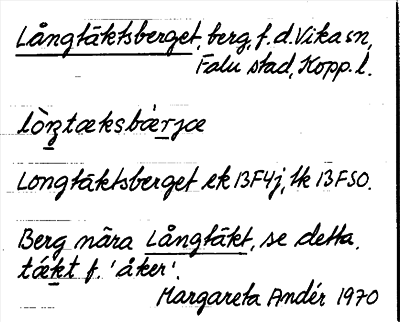 Långtäktsberget, berg, f.d. Vika sn,
Falu stad, Kopp. l.
lòṉztæksbæ̀ṟjæ
Longtäktsberget ek 13F4j, tk 13FSO.
Berg nära Långtäkt, se detta.
tǽḵt f. 'åker'.
Margareta Andér 1970